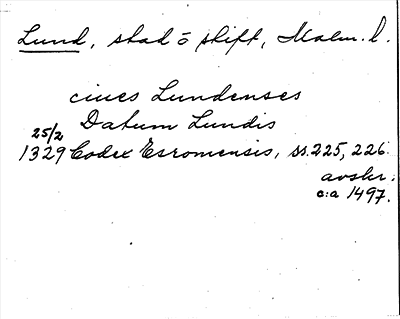 Lund, stad o skift, Malm. l.
cives Lundenses
Datum Lundis
25/2
1329 Codex Esromensis, ss. 225, 226.
avskr.
c:a 1497.